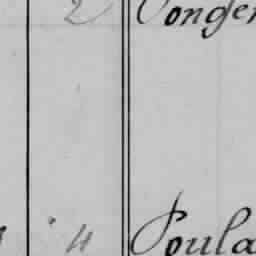 2 Conger
4 Poula